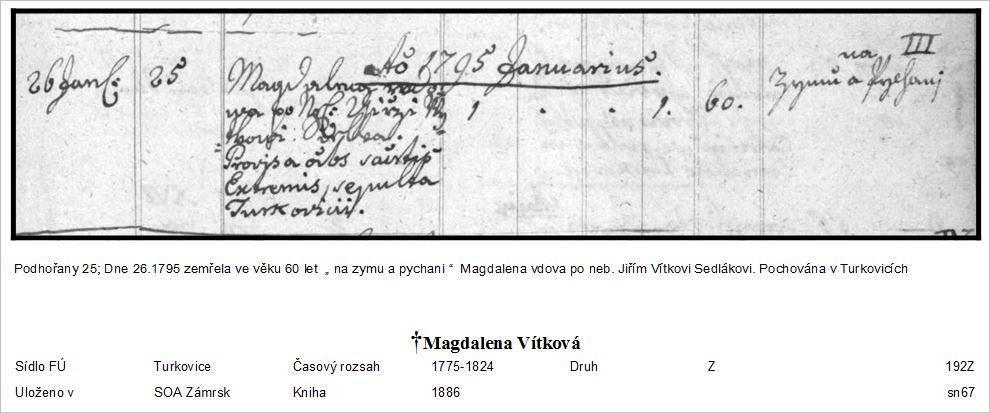 Aõ 1795 Januarius.
III
26 Jan: 25 Magdalena wdo 1 . . 1. 60. na
Zymu a Pychani
wa po Jiržj
Sedlka.
Provisa
Extremis, sepulta
Turkovicii.
Podhořany 25; Dne 26.1795 zemřela ve věku 60 let „ na zymu a pychani “ Magdalena vdova po neb. Jiřím Vítkovi Sedlákovi. Pochována v Turkovicích
†Magdalena Vítková
Sídlo FÚ Turkovice Časový rozsah 1775-1824 Druh Z 192Z
Uloženo v SOA Zámrsk Kniha 1886 sn67